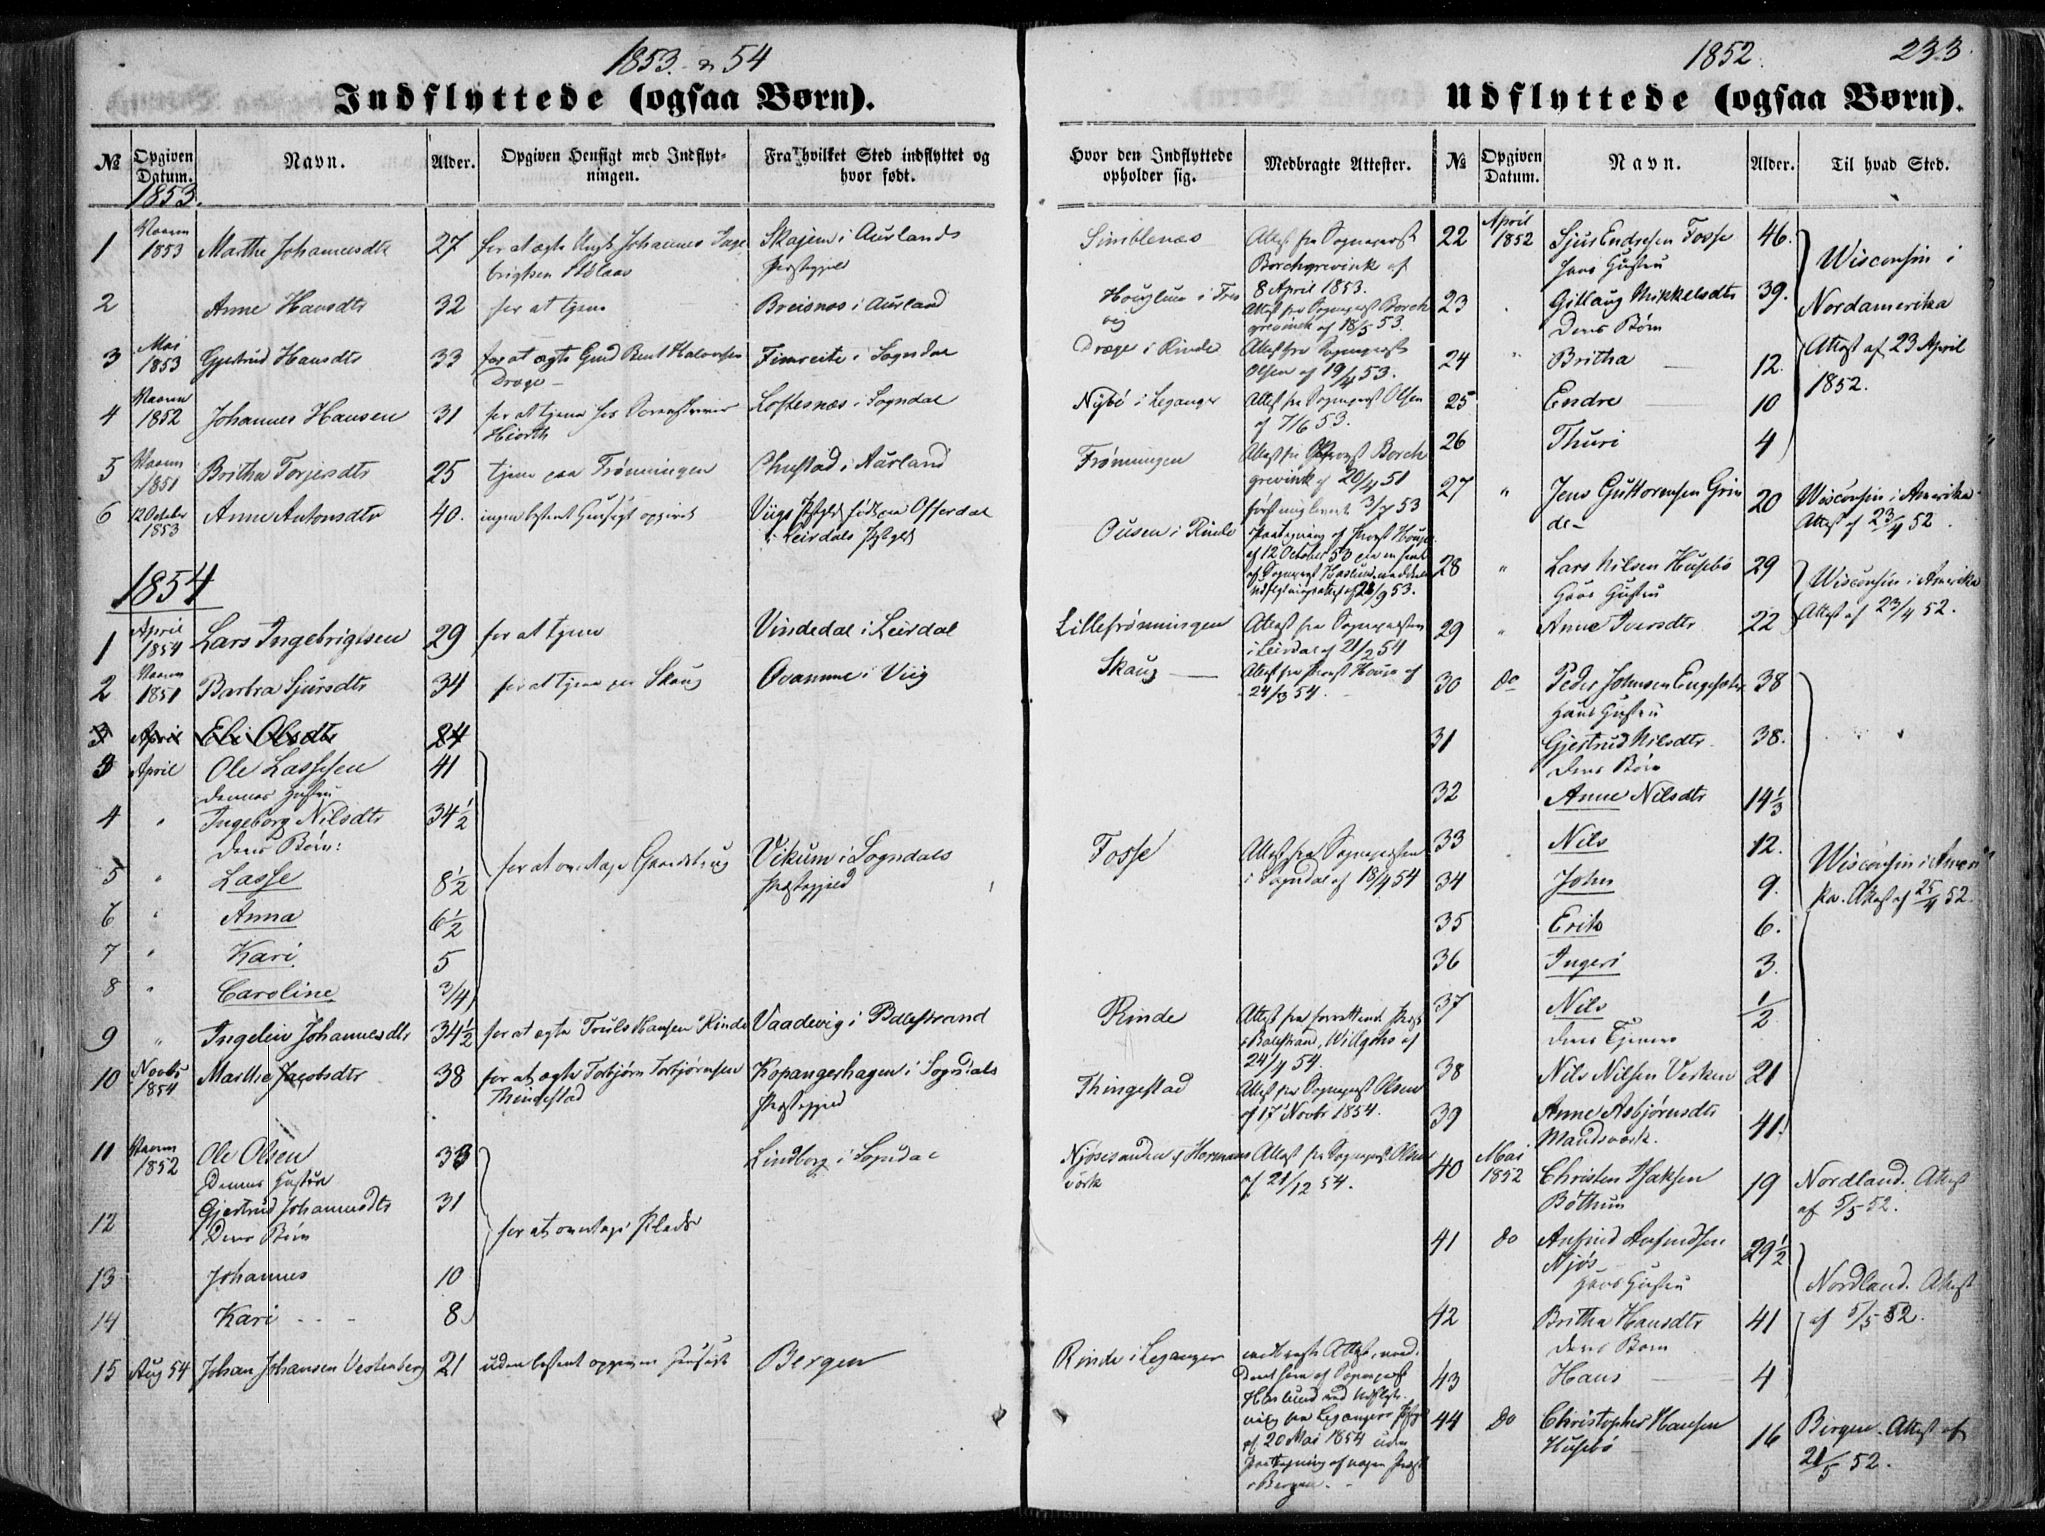 1853 & 54
Indflyttede (ogsaa Børn).
№ Opgiven Datum. Navn. Alder. Opgiven Hensigt med Indflytningen. Fra hvilket Sted indflyttet og hvor født.
1853.
1 Vaaren 1853 Marthe Johannesdtr 27 for at ægte Ungk. Johannes Inge
brigtsen Skjem i Aurlands
Præstegjeld
2 Anne Hansdtr 32 for at tjene Breisnæs i Aurland
3 Mai 1853 Gjertrud Hansdtr 33 for at ægte Gmd Bent Halvorsen Fimreite i Sogndal
Drage
4 Vaaren 1852 Johannes Hansen 31 for at tjene hos Sorenskriver Loftesnæs i Sogndal
Hiorth
5 Vaaren 1851 Britha Torjersdtr 25 tjene paa Frønningen i Aurland
6 12 October 1853 Anne Antonsdtr 40. ingen bestemt Hensigt opgivet Viigs Præstgjld født paa Offerdal
i Leirdals Præstgjld
1854
1 April 1854 Lars Ingebrigtsen 29 for at tjene Vindedal i Leirdal
2 Vaaren 1851 Barbra Sjursdtr 34 for at tjene paa Skaug Ovamme i Viig
3 April Eli Olsdtr 24
3 April Ole Lassesen 41
dennes Hustru
4 " Ingeborg Nilsdtr 34½
deres Børn:
for at overtage Gaardsbrug Vikum i Sogndals
Præstegjeld
5 " Lasse 8½
6 " Anna 6½
7 " Kari 5
8 " Caroline 3/4
9 " Ingelev Johannesdtr 34½ for at ægte Truls Hansen Rinde Vaadevig i Balestrand
10 Novbr 1854 Marthe Jacobsdtr 38 for at ægte Torbjørn Torbjørnsen Kopangerhagen i Sogndals
Thingestad Præstegjeld
11 Vaaren 1852 Ole Olsen 33 Lindborg i Sogndal
Dennes Hustru
12 Gjertrud Johannesdtr 31
Deres Børn
for at overtage Plads
13 Johannes 10
14 Kari 8
15 Aug 54 Johan Johansen Vestenberg 21 uden bestemt opgiven Hensigt Bergen
1852. 233
Udflyttede (ogsaa Børn).
Hvor den Indflyttede opholder sig. Medbragte Attester. № Opgiven Datum. Navn. Alder. Til hvad Sted.
Simblenæs Attest fra Sogneprest
Borchgrevink af
8 April 1853.
Houglum i Fres
vig Attest fra Sogneprest Borch
grevink af 18/5 53.
Drage i Rinde Attest fra Sogneprest
Olsen af 19/4 53.
Nybø i Leganger Attest fra Sogneprest Olsen
af 7/6 53.
Frønningen Attest fra Sognprst Borch
grevink af 20/4 51
først 3/7 53
Ousen i Rinde Paategning af Provst
af 12 October 53 paa en
af Sogneprest Haslund
Udflytningsattest af 21/9 53.
Lillefrønningen Attest fra Sognepresten
i Leirdal af 21/2 54
Skaug Attest fra Provst af
24/3 54.
Fosse Attest fra Sognepresten
i Sogndal af 18/4 54
Rinde Attest fra Prest
i Balestrand, Willgohs af
24/4 54.
Thingestad Attest fra Sogneprest Olsen
af 17 Novbr 1854.
Njøsesanden af Hermans
værk Attest fra Sogneprest Olsen
af 21/12 54.
Rinde i Leganger medbragte Attest,
Haslund ved Udflyt
ning fra Legangers
af 20 Mai 1854 uden
Paategning af nogen Præst
i Bergen.
22 April 1852 Sjur Endresen Fosse 46. Wisconsin i
hans Hustru
23 " Gitlaug Mikkelsdtr 39. Nordamerika
Deres Børn
24 " Britha 12. Attest af 23 April
25 Endre 10 1852.
26 Thuri 4
27 " Jens Guttormsen Grin
de 20 Wisconsin i Amerika.
Attest af 23/4 52.
28 " Lars Nilsen Husebø 29 Wisconsin i Amerika
Hans Hustru
29 " Anne Iversdtr 22 Attest af 23/4 52.
30 do Peder Johnsen Engesæter 38
Hans Hustru
31 Gjertrud Nilsdtr. 38.
deres Børn
32 Anne Nilsdtr 14⅓
33 Nils 12. Wisconsin i Ameri
34 John 9. ka. Attest af 25/4 52.
35 Erik 6.
36 Ingeri 3.
37 Nils ½
deres Tjener
38 Nils Nilsen Verken 21
39 Anne Asbjørnsdtr
Mandsværk. 41.
40 Mai 1852 Christen Isaksen
Bøthun 19 Nordland. Attest
af 5/5 52.
41 do Anfind Anfindsen
Njøs 29½
Hans Hustru
Nordland. Attest
42 Britha Hansdtr 41 af 5/5 52.
deres Barn
43 Hans 4
44 do Christopher Hansen
Husebø 16 Bergen. Attest af
21/5 52.